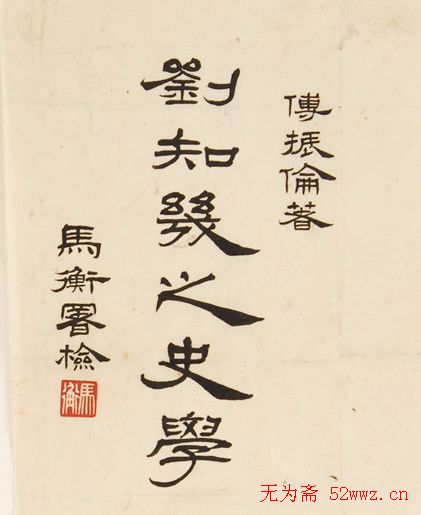 傅振倫著
劉知幾之史學
馬衡署檢
馬衡
无为斋 52wwz.cn